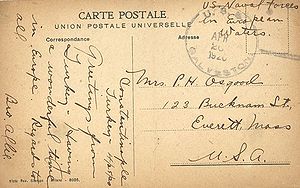 CARTE POSTALE
UNION POSTALE UNIVERSELLE
Correspondance
Adresse
US Naval Forces
in European
Waters.
U.S.S.
APR
20
1920
GALVESTON
Constantinople
Turkey
Greetings from
Turkey - Having
a wonderful time
in Europe. Regards to
all
Mrs. P. H. Osgood
123 Bucknam St,
Everett, Mass
U.S.A.